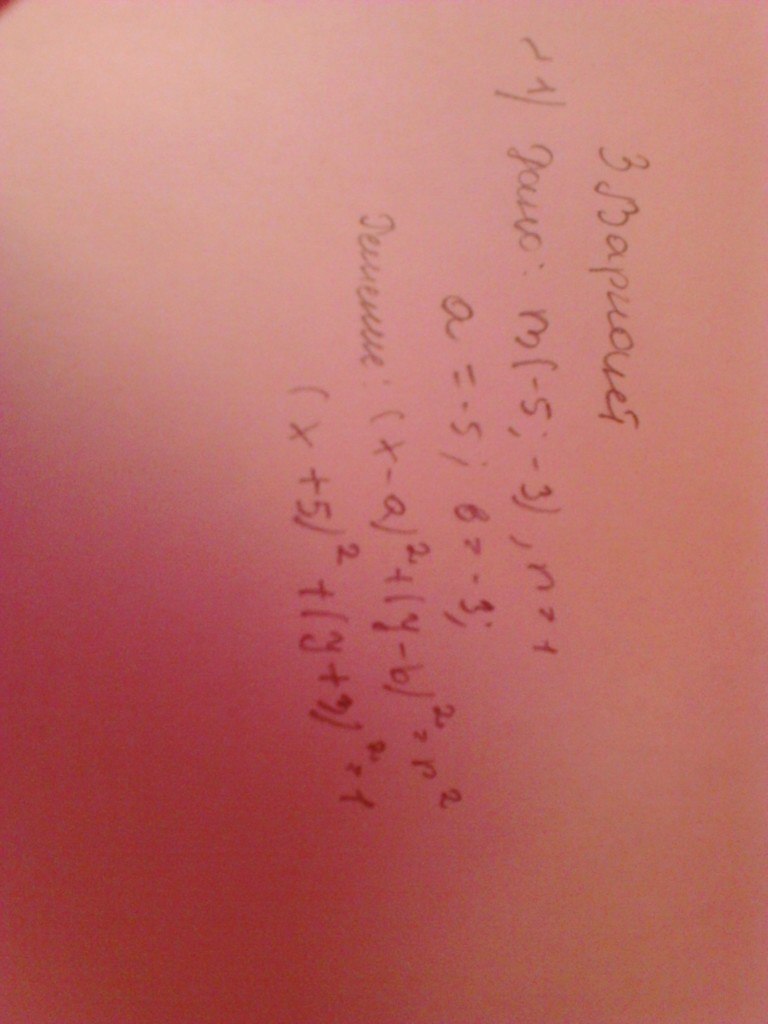 3 Вариант
~ 1) Дано: m(-5; -3), r = 1
a = -5; в = -3;
Решение: (x - a)² + (y - b)² = r²
(x + 5)² + (y + 3)² = 1